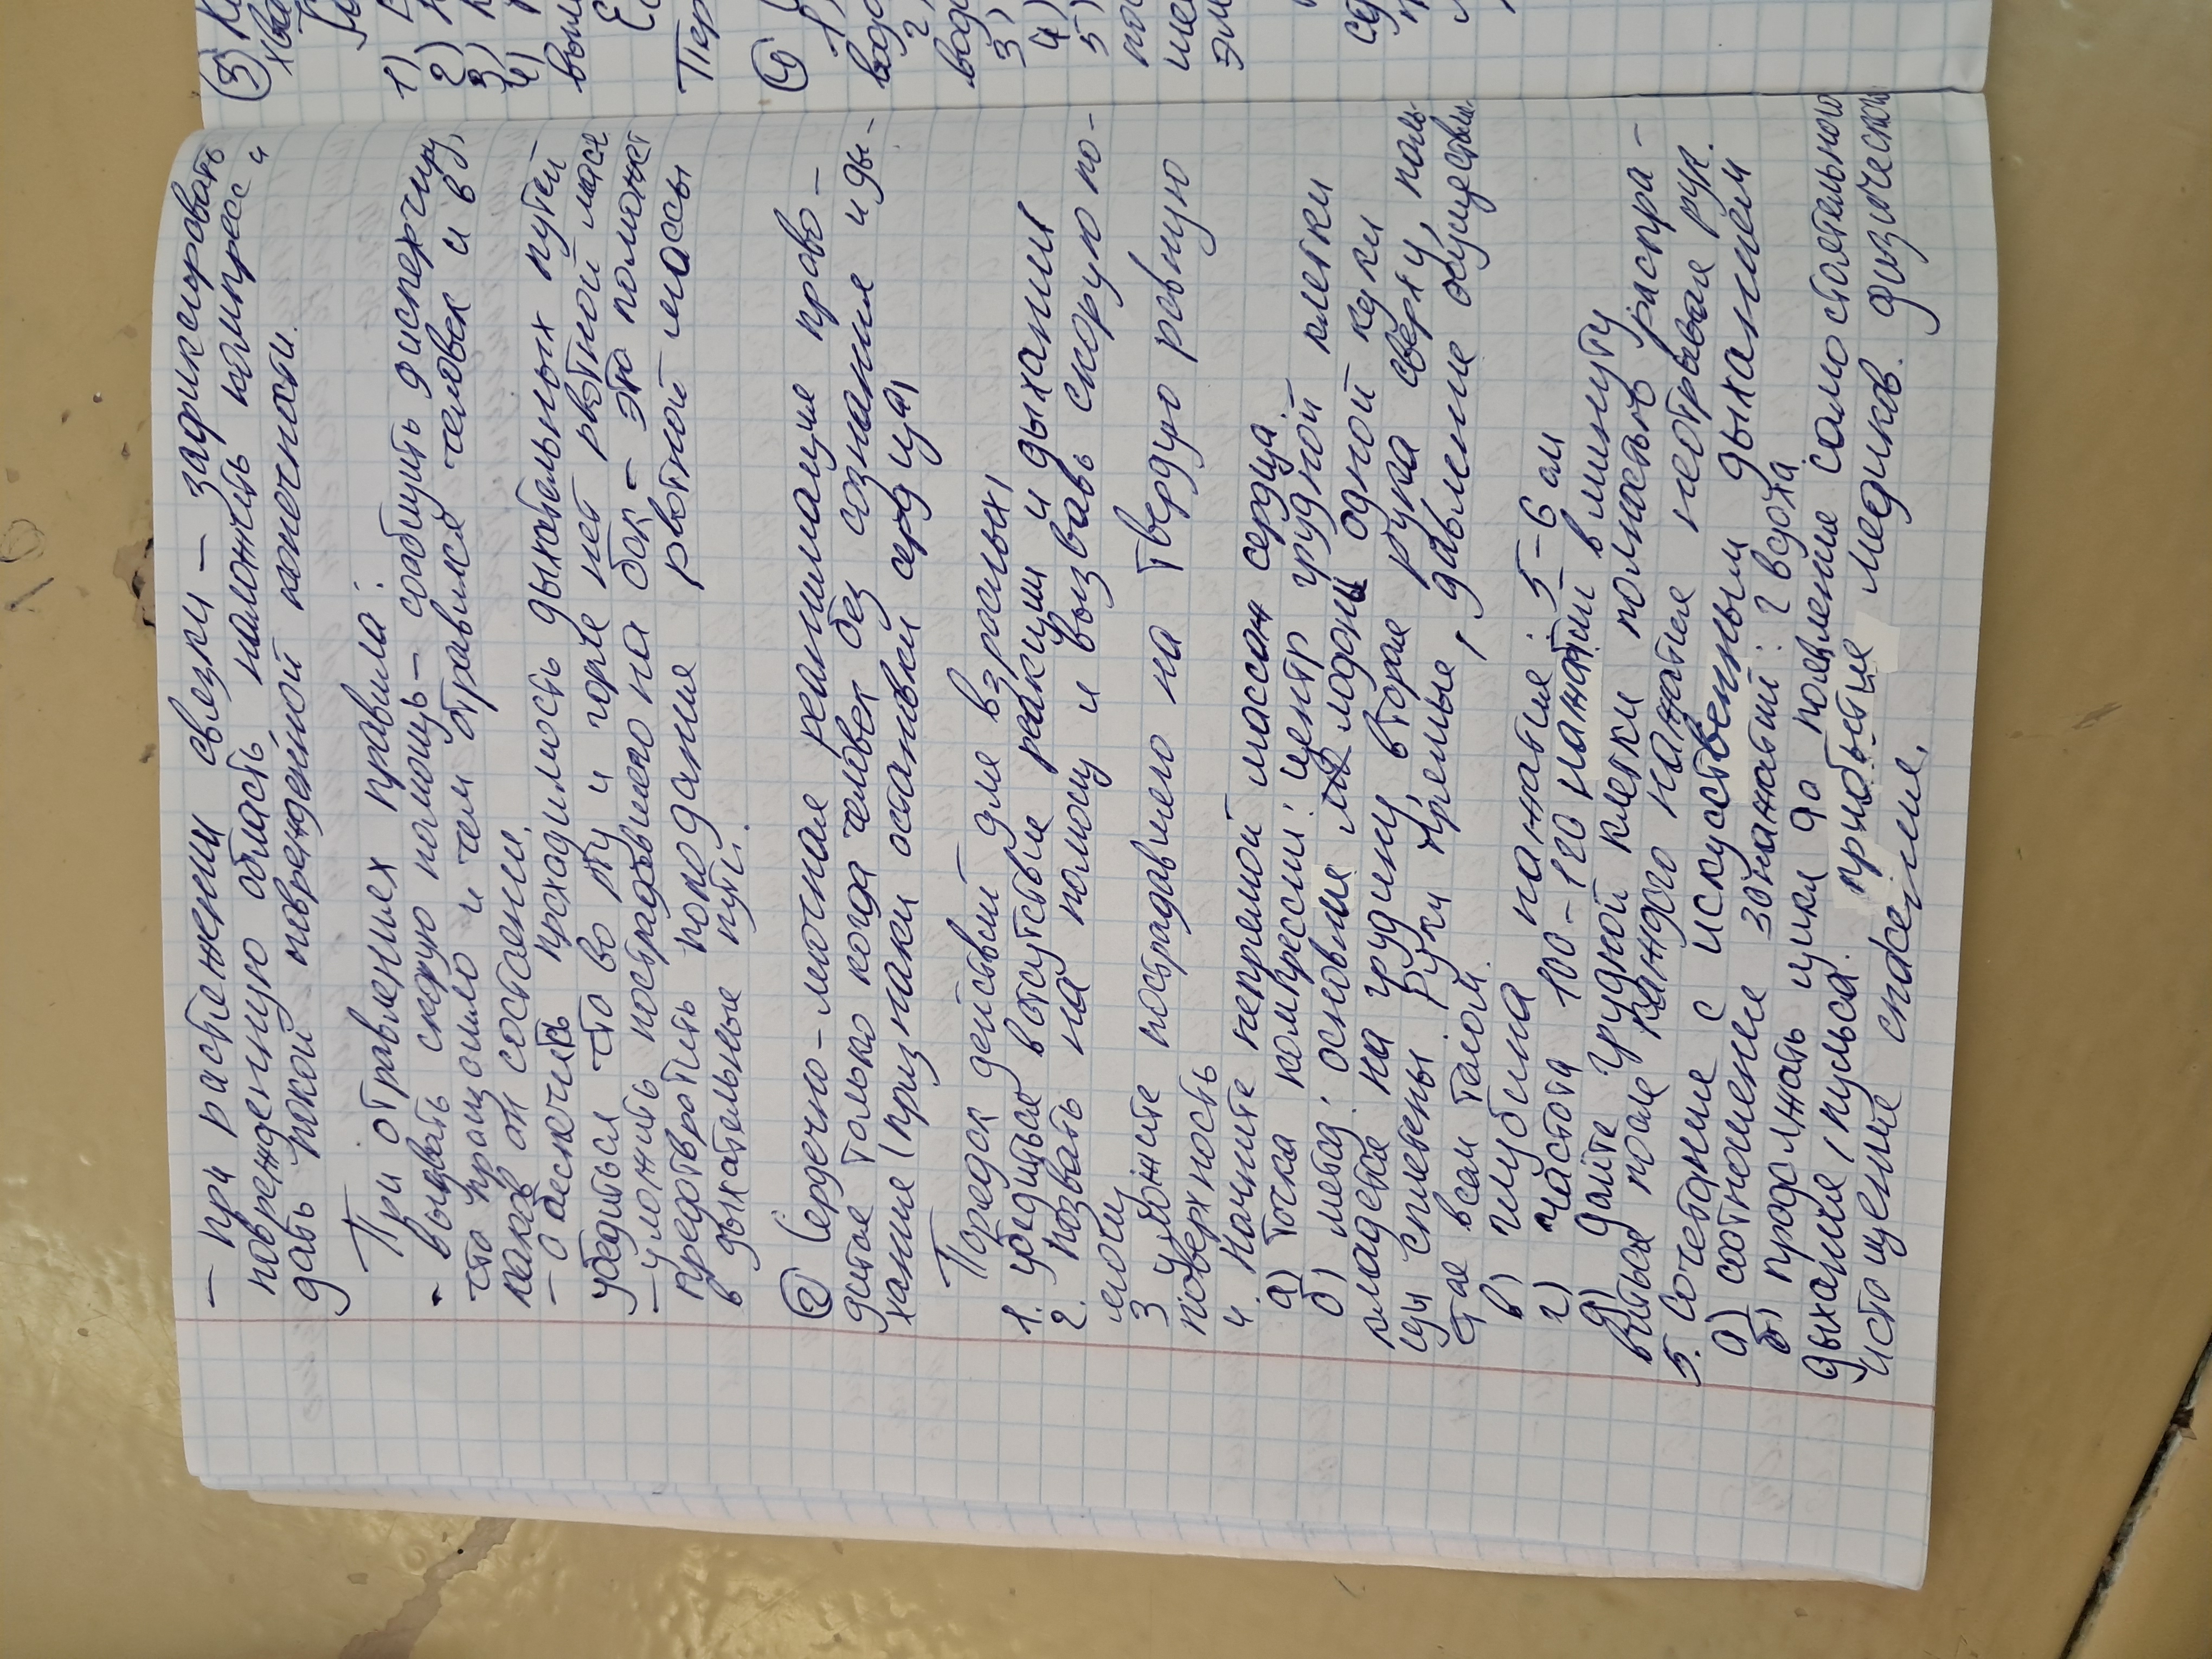 - при растежении связки - зафиксировать
поврежденную область, наложить компресс и
дать покой поврежденной конечности.
При отравлениях правила:
- вызвать скорую помощь - сообщить диспетчиру,
что произошло и чем отравился человек и в
каком он состаени.
- обеспечить проходимость дыхательных путей
убедиться что во рту и горле нет рвотной масс
- уложить пострадавшего на бок - это поможет
предотвротить попадание рвотной массы
в дыхательные пути.
② Сердечно-легочная реанимация прово-
дится только когда человек без сознания и ды-
хания (признаки остановки сердца)
Порядок действий для взрослых
1. убедиться в отсутствие реакции и дыхания
2. позвать на помощь и вызвать скорую по-
мощь
3 уложите пострадавшего на твердую ровную
поверхность
4. Начните непрямой массаж сердца.
а) точка компрессии: центр грудной клетки
б) метод: основние ладони одной руки
кладется на грудину, вторая рука сверху, паль-
цы сплетены руки прямые, давление осуществля
стае всем телом.
в) глубина нажатия: 5-6 см
г) частота 100-120 нажатий в минуту
д) дайте грудной клетки полностью распра-
виться после каждого нажатия неотрывая рук.
5. Сочетание с искуственным дыханием
а) соотношение 30 нажатий: 2 вдоха
б) продолжать цикл до появление самостоятельного
дыхания, пульса. прибытие медиков. физическое
истощение спасе
③
1)
2)
3)
4)
вып
Пер
④
1)
2)
3)
4)
5)